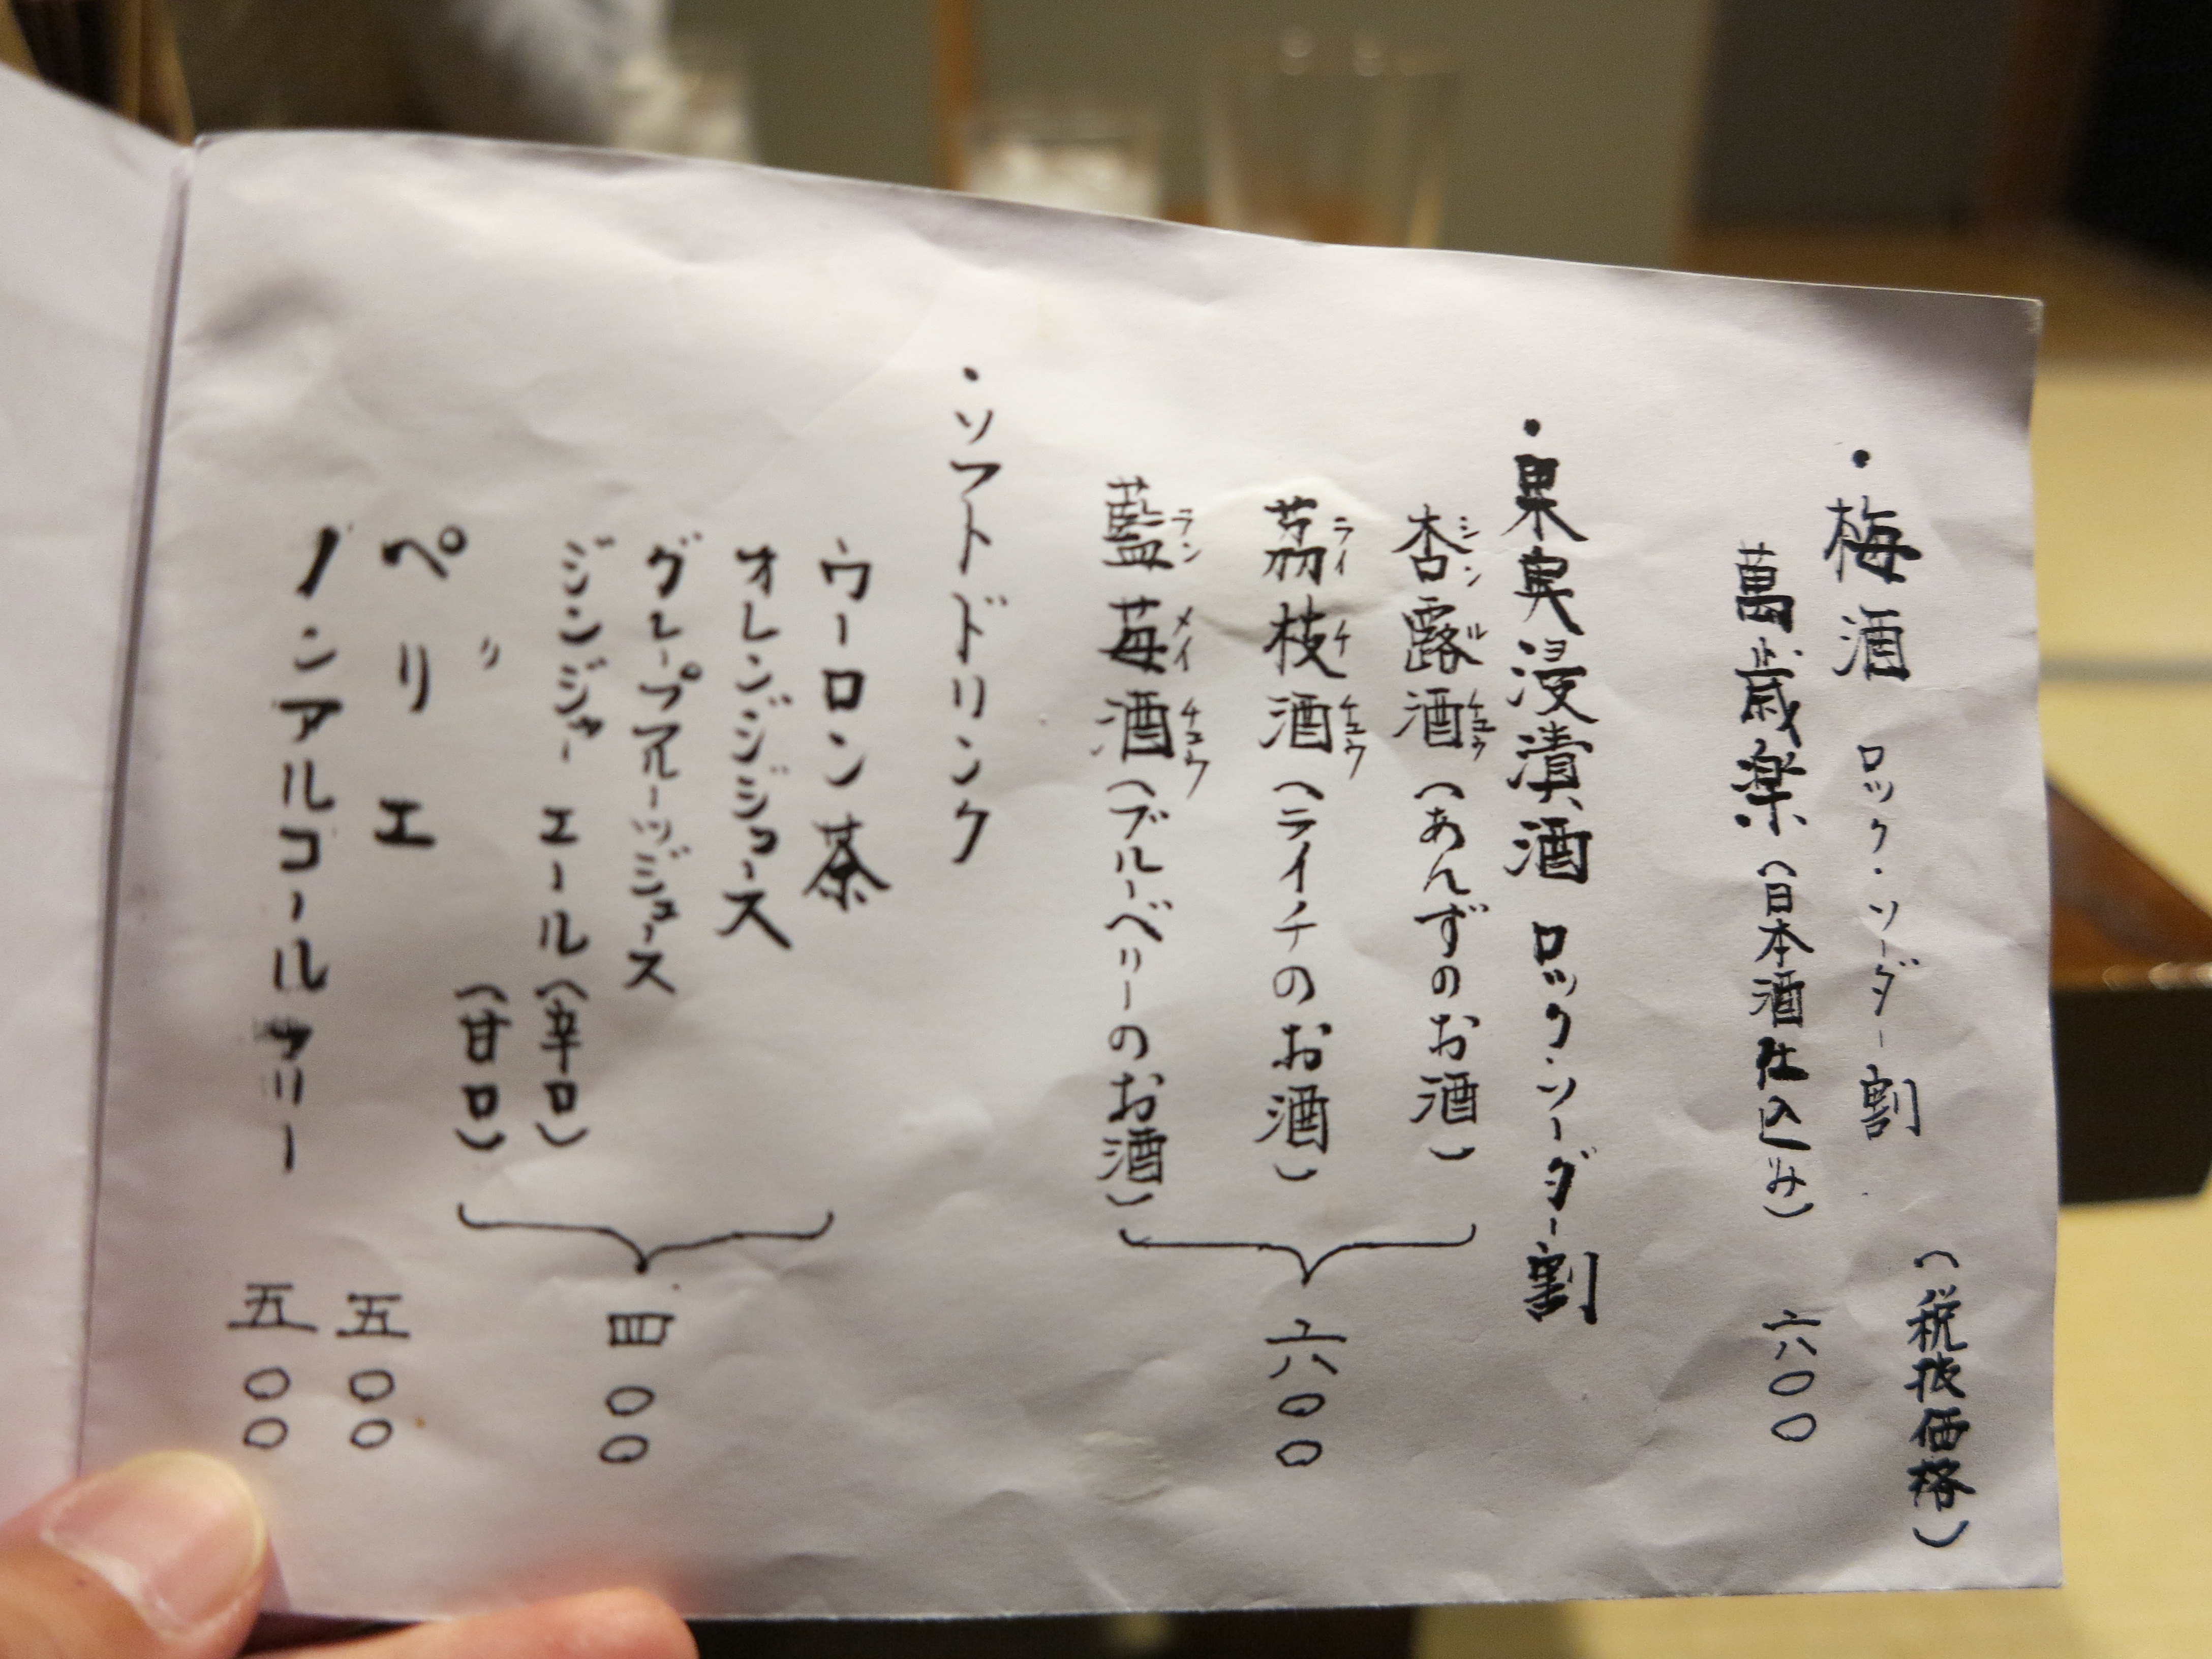 ・梅酒 ロック・ソーダー割 (税抜価格)
萬歳楽(日本酒仕込み) 六〇〇
・果実浸漬酒 ロック・ソーダー割
杏露酒(あんずのお酒)
シンルチュウ
茘枝酒(ライチのお酒)
ライチチュウ
藍苺酒(ブルーベリーのお酒)
ランメイチュウ
六〇〇
・ソフトドリンク
ウーロン茶
オレンジジュース
グレープフルーツジュース
ジンジャーエール(辛口)
〃 (甘口)
四〇〇
ペリエ 五〇〇
ノンアルコールフリー 五〇〇